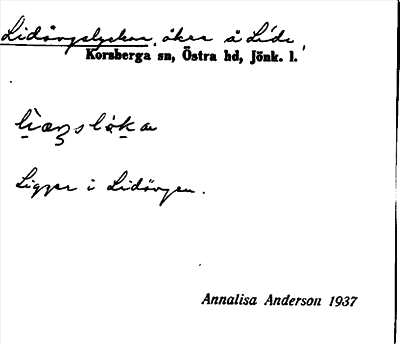 Lidängslyckan, åker å Lida
Korsberga sn, Östra hd, Jönk. l.
Ligger i Lidängen.
Annalisa Anderson 1937